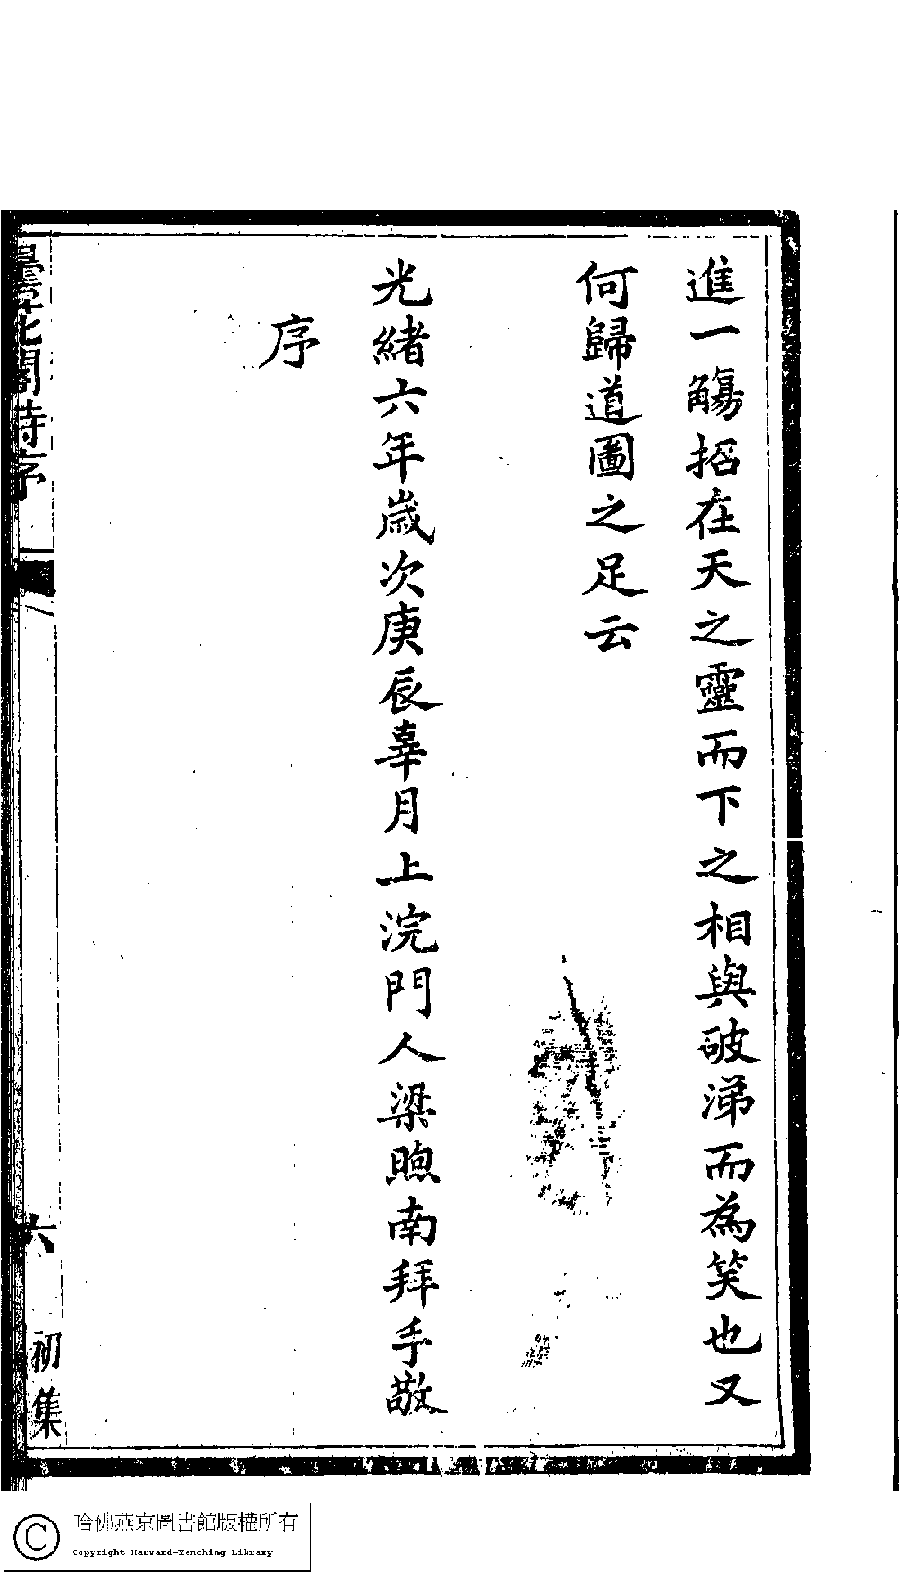 進一觴招在天之靈而下之相與破涕而為笑也又
何歸道圖之足云
光緒六年歲次庚辰辜月上浣門人梁煦南拜手敬
序
曇花閣詩序
六
初集
哈佛燕京圖書館版權所有
Copyright Harvard-Yenching Library